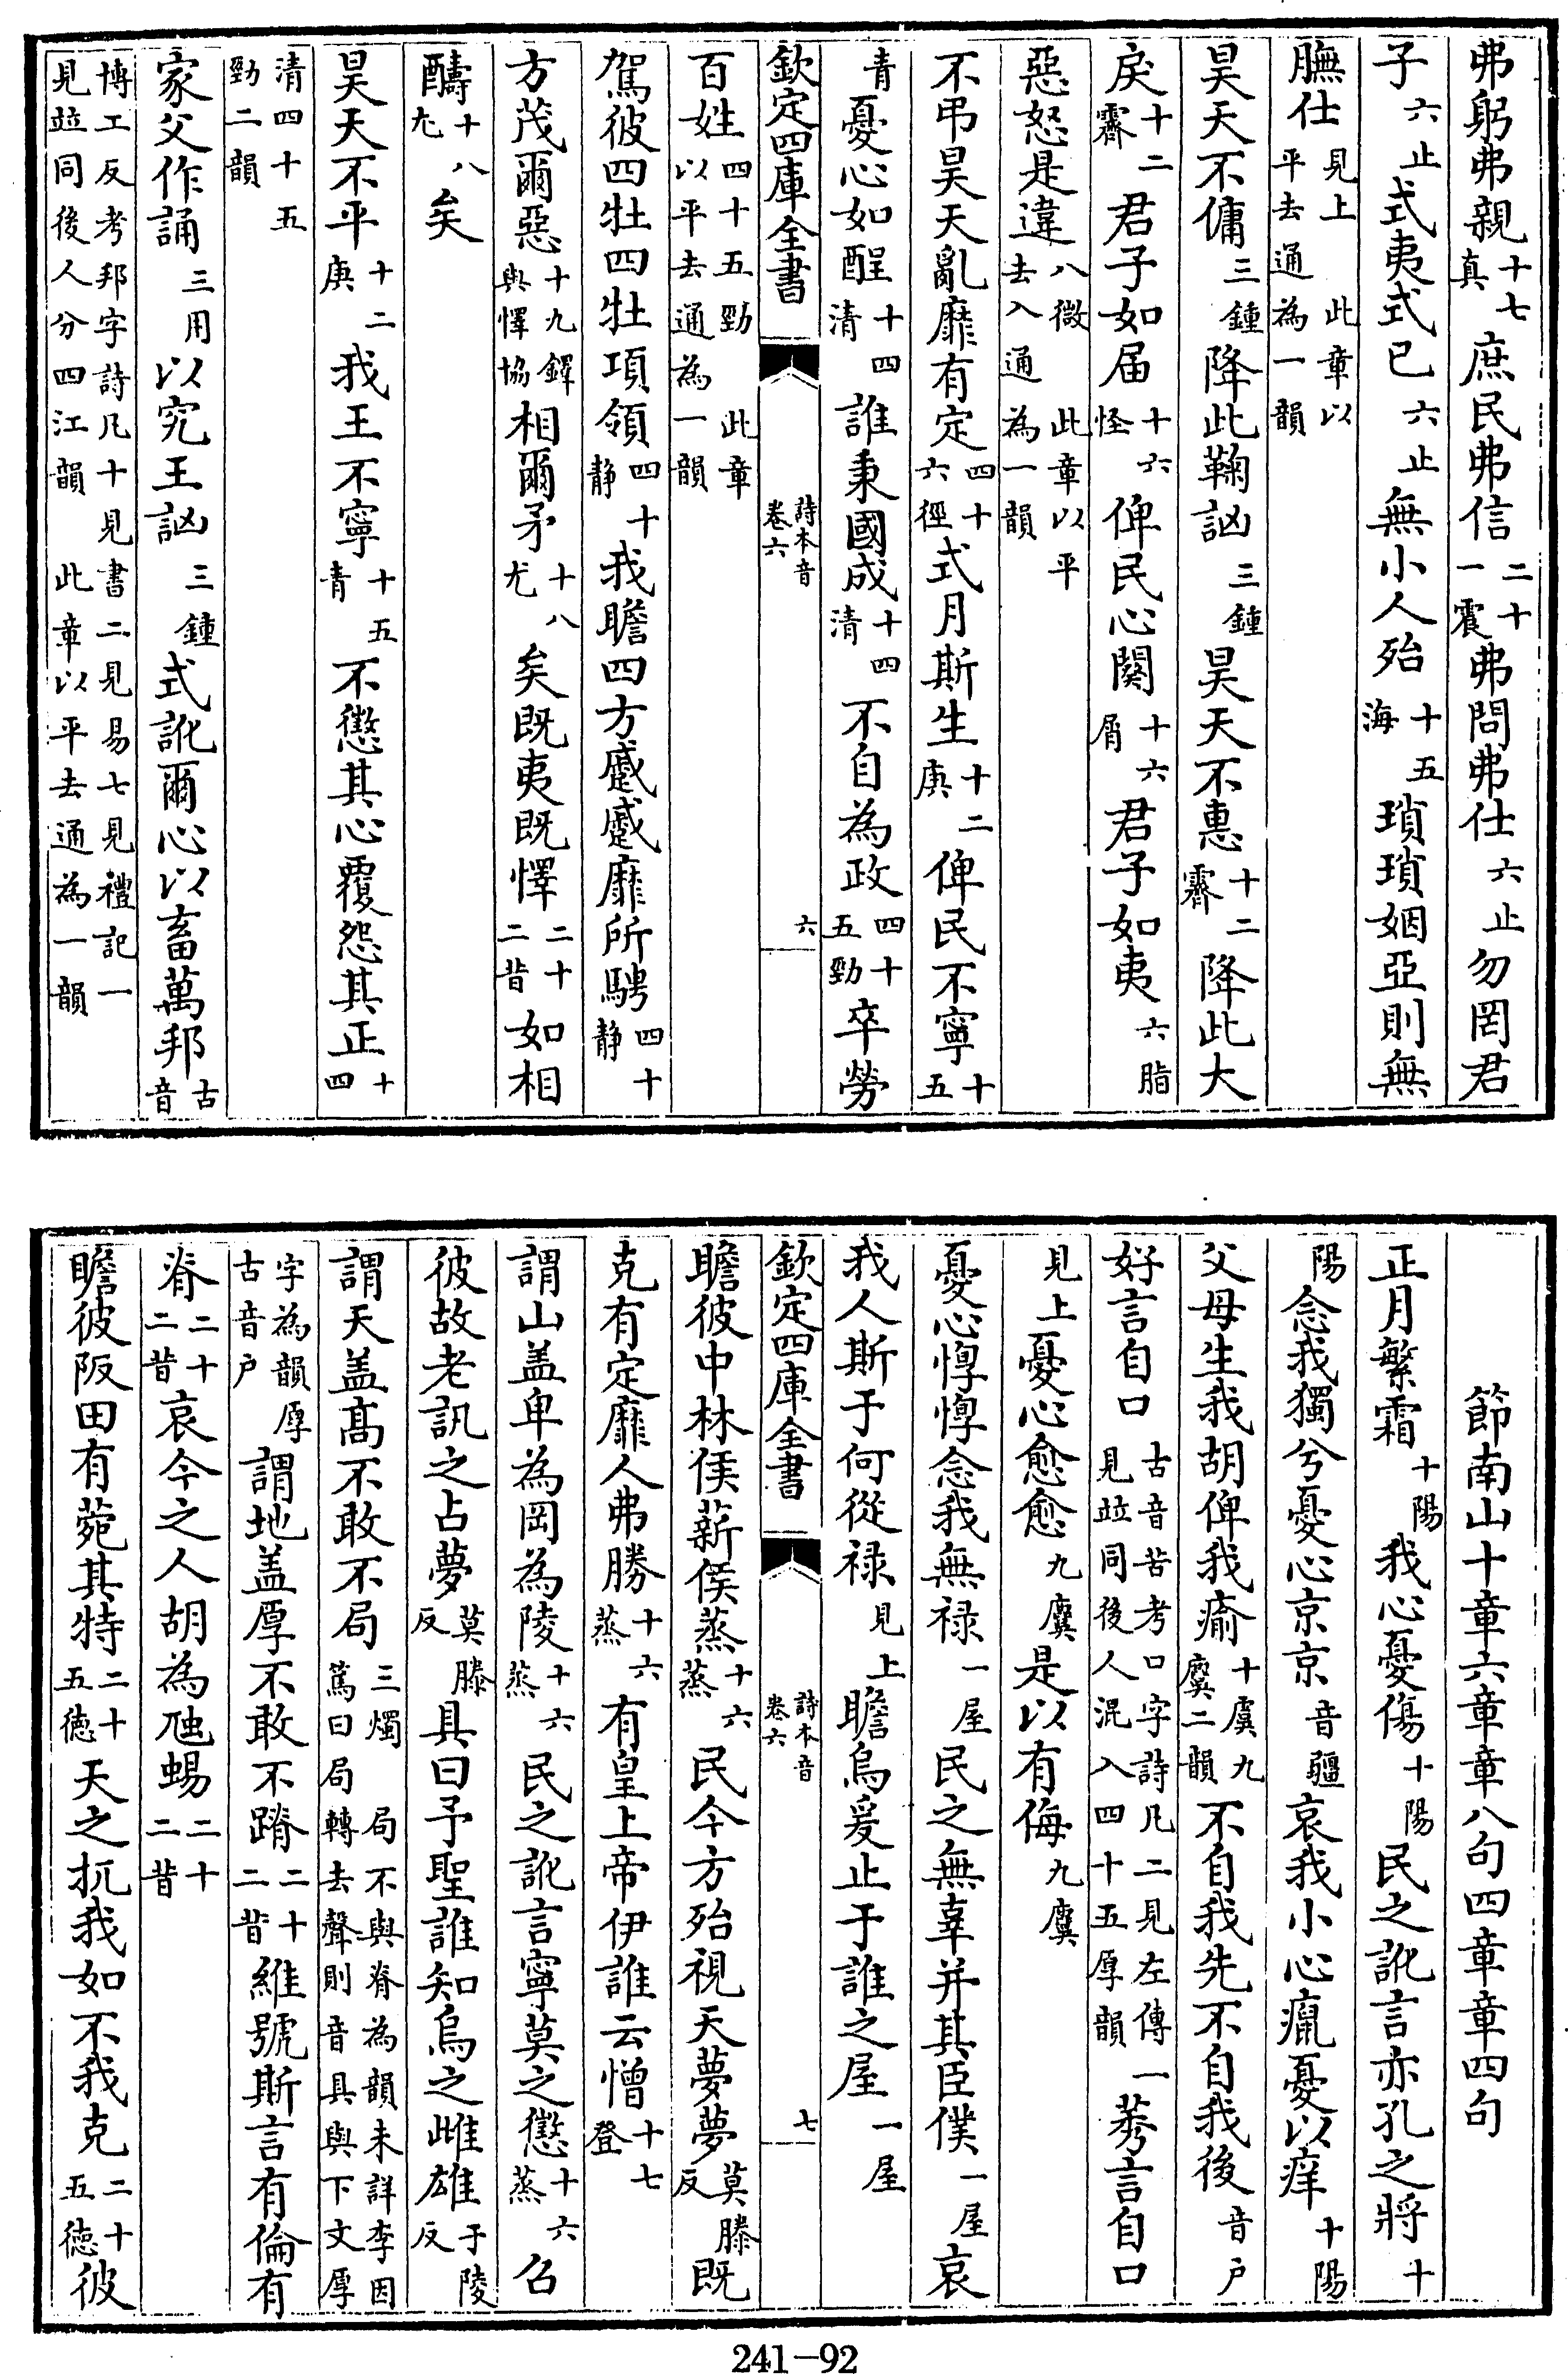 弗躬弗親十七真庶民弗信二十一震弗問弗仕六止勿罔君
子六止式夷式已六止無小人殆十五海瑣瑣姻亞則無
膴仕見上此章以平去通為一韻
昊天不傭三鍾降此鞠訩三鍾昊天不惠十二霽降此大
戾十二霽君子如届十六怪俾民心闋十六屑君子如夷六脂
惡怒是違八微此章以平去入通為一韻
不弔昊天亂靡有定四十六徑式月斯生十二庚俾民不寧十五
青憂心如酲十四清誰秉國成十四清不自為政四十五勁卒勞
欽定四庫全書 詩本音卷六 六
百姓四十五勁此章以平去通為一韻
駕彼四牡四牡項領四十静我瞻四方蹙蹙靡所騁四十静
方茂爾惡十九鐸與懌協相爾矛十八尤矣既夷既懌二十二昔如相
醻十八尤矣
昊天不平十二庚我王不寧十五青不懲其心覆怨其正十四
清四十五勁二韻
家父作誦三用以究王訩三鍾式訛爾心以畜萬邦古音
博工反考邦字詩凡十見書二見易七見禮記一見竝同後人分四江韻此章以平去通為一韻
節南山十章六章章八句四章章四句
正月繁霜十陽我心憂傷十陽民之訛言亦孔之將十
陽念我獨兮憂心京京音疆哀我小心癙憂以痒十陽
父母生我胡俾我瘉十虞九麌二韻不自我先不自我後音户
好言自口古音苦考口字詩凡二見左傳一見竝同後人混入四十五厚韻莠言自口
見上憂心愈愈九麌是以有侮九麌
憂心惸惸念我無禄一屋民之無辜并其臣僕一屋哀
我人斯于何從禄見上瞻烏爰止于誰之屋一屋
欽定四庫全書 詩本音卷六 七
瞻彼中林侯薪侯蒸十六蒸民今方殆視天夢夢莫滕反既
克有定靡人弗勝十六蒸有皇上帝伊誰云憎十七登
謂山盖卑為岡為陵十六蒸民之訛言寧莫之懲十六蒸召
彼故老訊之占夢莫滕反具曰予聖誰知烏之雌雄于陵反
謂天盖髙不敢不局三燭局不與脊為韻未詳李因篤曰局轉去聲則音具與下文厚
字為韻厚古音户謂地盖厚不敢不蹐二十二昔維號斯言有倫有
脊二十二昔哀今之人胡為虺蜴二十二昔
瞻彼阪田有菀其特二十五徳天之扤我如不我克二十五徳彼
241-92